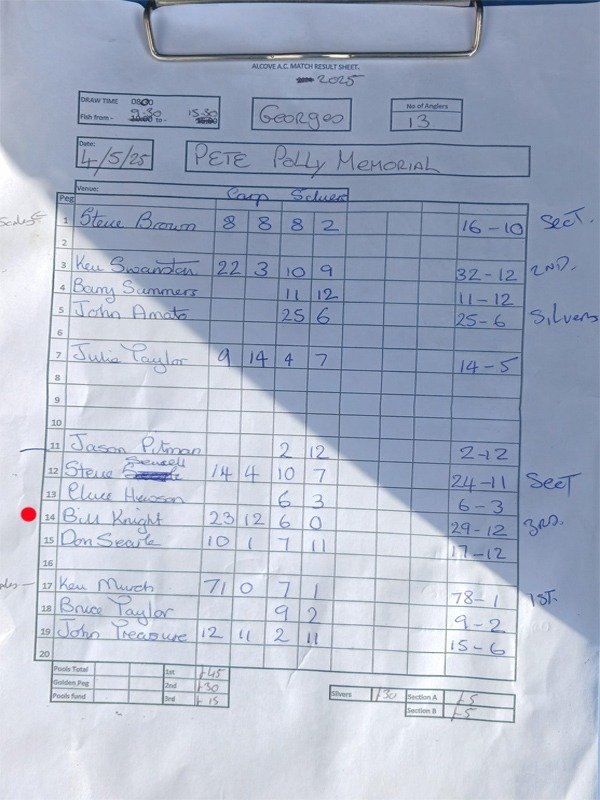 ALCOVE A.C. MATCH RESULT SHEET.
2025
DRAW TIME 0800
Fish from - 9.30 10.00 to - 15.30
Georges
No of Anglers
13
Date:
4/5/25
PETE POLLY MEMORIAL
Venue:
Peg Carp Silvers
1 Steve Brown 8 8 8 2 16-10 SecT.
2
3 Ken Swanston 22 3 10 9 32-12 2ND.
4 Barry Summers 11 12 11-12
5 John Amato 25 6 25-6 Silvers
6
7 Julie Taylor 9 14 4 7 14-5
8
9
10
11 Jason Pitman 2 12 2-12
12 Steve Sewell 14 4 10 7 24-11 SecT
13 Clive Hewson 6 3 6-3
14 Bill Knight 23 12 6 0 29-12 3RD.
15 Don Searle 10 1 7 11 17-12
16
17 Ken Murch 71 0 7 1 78-1 1ST.
18 Bruce Taylor 9 2 9-2
19 John Treasure 12 11 2 11 15-6
20
Pools Total 1st £45
Golden Peg 2nd £30
Pools fund 3rd £15
Silvers £30 Section A £5
Section B £5